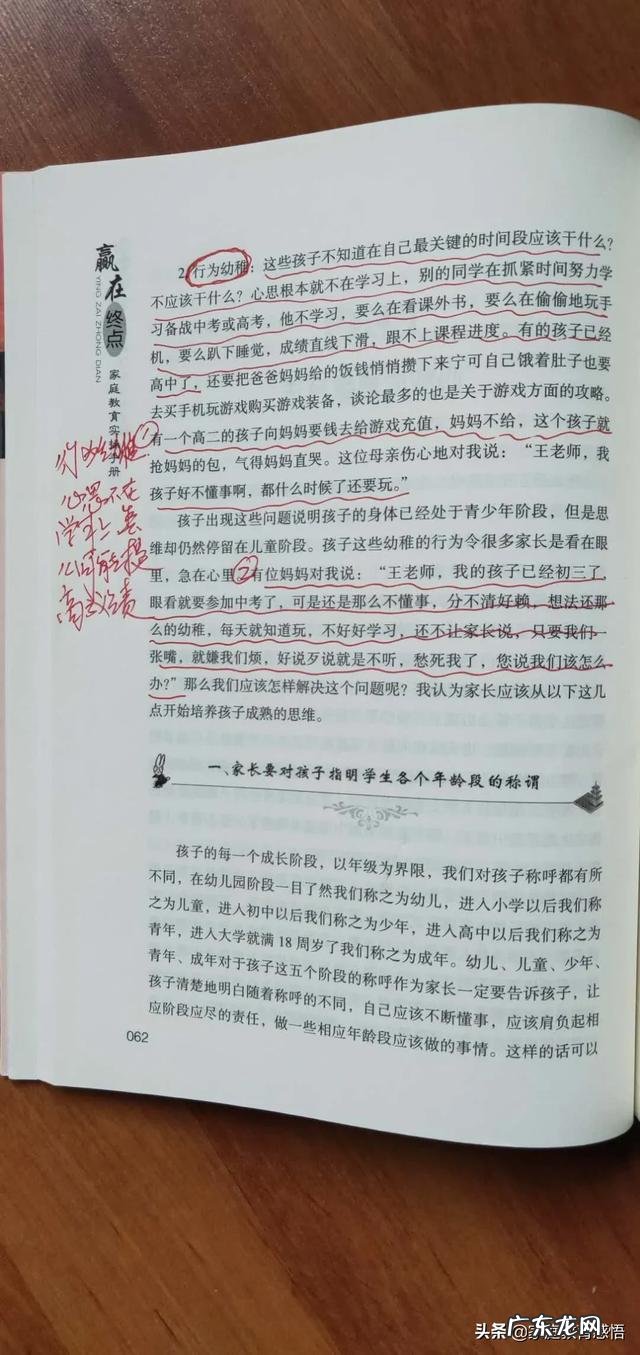 赢在终点
YING ZAI ZHONG DIAN
家庭教育实操手册
2. 行为幼稚：这些孩子不知道在自己最关键的时间段应该干什么？
不应该干什么？心思根本就不在学习上，别的同学在抓紧时间努力学
习备战中考或高考，他不学习，要么在看课外书，要么在偷偷地玩手
机，要么趴下睡觉，成绩直线下滑，跟不上课程进度。有的孩子已经
高中了，还要把爸爸妈妈给的饭钱悄悄攒下来宁可自己饿着肚子也要
去买手机玩游戏购买游戏装备，谈论最多的也是关于游戏方面的攻略。
有一个高二的孩子向妈妈要钱去给游戏充值，妈妈不给，这个孩子就
抢妈妈的包，气得妈妈直哭。这位母亲伤心地对我说：“王老师，我
孩子好不懂事啊，都什么时候了还要玩。”
孩子出现这些问题说明孩子的身体已经处于青少年阶段，但是思
维却仍然停留在儿童阶段。孩子这些幼稚的行为令很多家长是看在眼
里，急在心里②有位妈妈对我说：“王老师，我的孩子已经初三了，
眼看就要参加中考了，可是还是那么不懂事，分不清好赖，想法还那
么的幼稚，每天就知道玩，不好好学习，还不让家长说，只要我们一
张嘴，就嫌我们烦，好说歹说就是不听，愁死我了，您说我们该怎么
办？”那么我们应该怎样解决这个问题呢？我认为家长应该从以下这几
点开始培养孩子成熟的思维。
行为幼稚①
心思不在
学习上
高成绩
一、家长要对孩子指明学生各个年龄段的称谓
孩子的每一个成长阶段，以年级为界限，我们对孩子称呼都有所
不同，在幼儿园阶段一目了然我们称之为幼儿，进入小学以后我们称
之为儿童，进入初中以后我们称之为少年，进入高中以后我们称之为
青年，进入大学就满 18 周岁了我们称之为成年。幼儿、儿童、少年、
青年、成年对于孩子这五个阶段的称呼作为家长一定要告诉孩子，让
孩子清楚地明白随着称呼的不同，自己应该不断懂事，应该肩负起相
应阶段应尽的责任，做一些相应年龄段应该做的事情。这样的话可以
062
头条 @家庭教育感悟
广东龙网